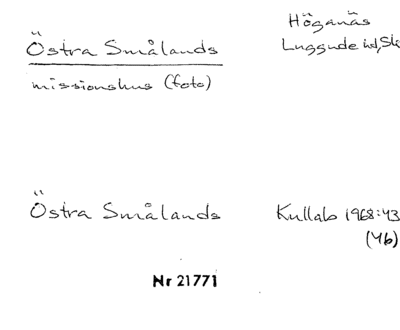 Östra Smålands
missionshus (foto)
Höganäs
Luggude hd, Sk
Östra Smålands
Kullab 1968:43
(4b)
Nr 21771